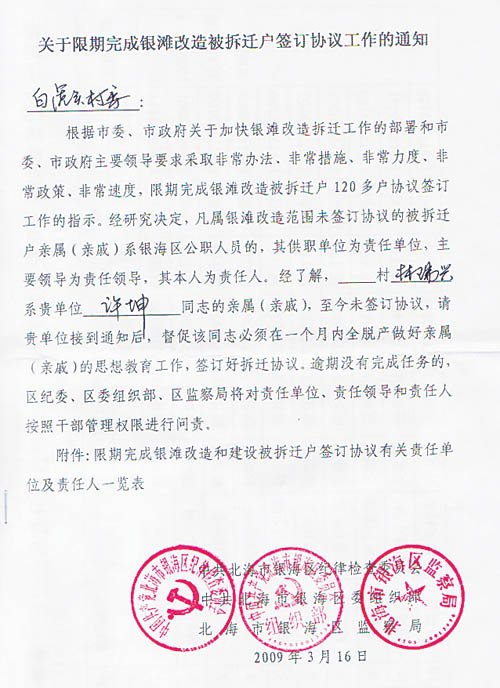 关于限期完成银滩改造被拆迁户签订协议工作的通知
白
：
根据市委、市政府关于加快银滩改造拆迁工作的部署和市
委、市政府主要领导要求采取非常办法、非常措施、非常力度、非
常政策、非常速度，限期完成银滩改造被拆迁户 120 多户协议签订
工作的指示。经研究决定，凡属银滩改造范围未签订协议的被拆迁
户亲属（亲戚）系银海区公职人员的，其供职单位为责任单位，主
要领导为责任领导，其本人为责任人。经了解，____村林瑞兴
系贵单位 许坤 同志的亲属（亲戚），至今未签订协议，请
贵单位接到通知后，督促该同志必须在一个月内全脱产做好亲属
（亲戚）的思想教育工作，签订好拆迁协议。逾期没有完成任务的，
区纪委、区委组织部、区监察局将对责任单位、责任领导和责任人
按照干部管理权限进行问责。
附件：限期完成银滩改造和建设被拆迁户签订协议有关责任单
位及责任人一览表
中共北海市银海区纪律检查委员会
中共北海市银海区委组织部
北海市银海区监察局
2009 年 3 月 16 日
组织部
北海市银海区监察局